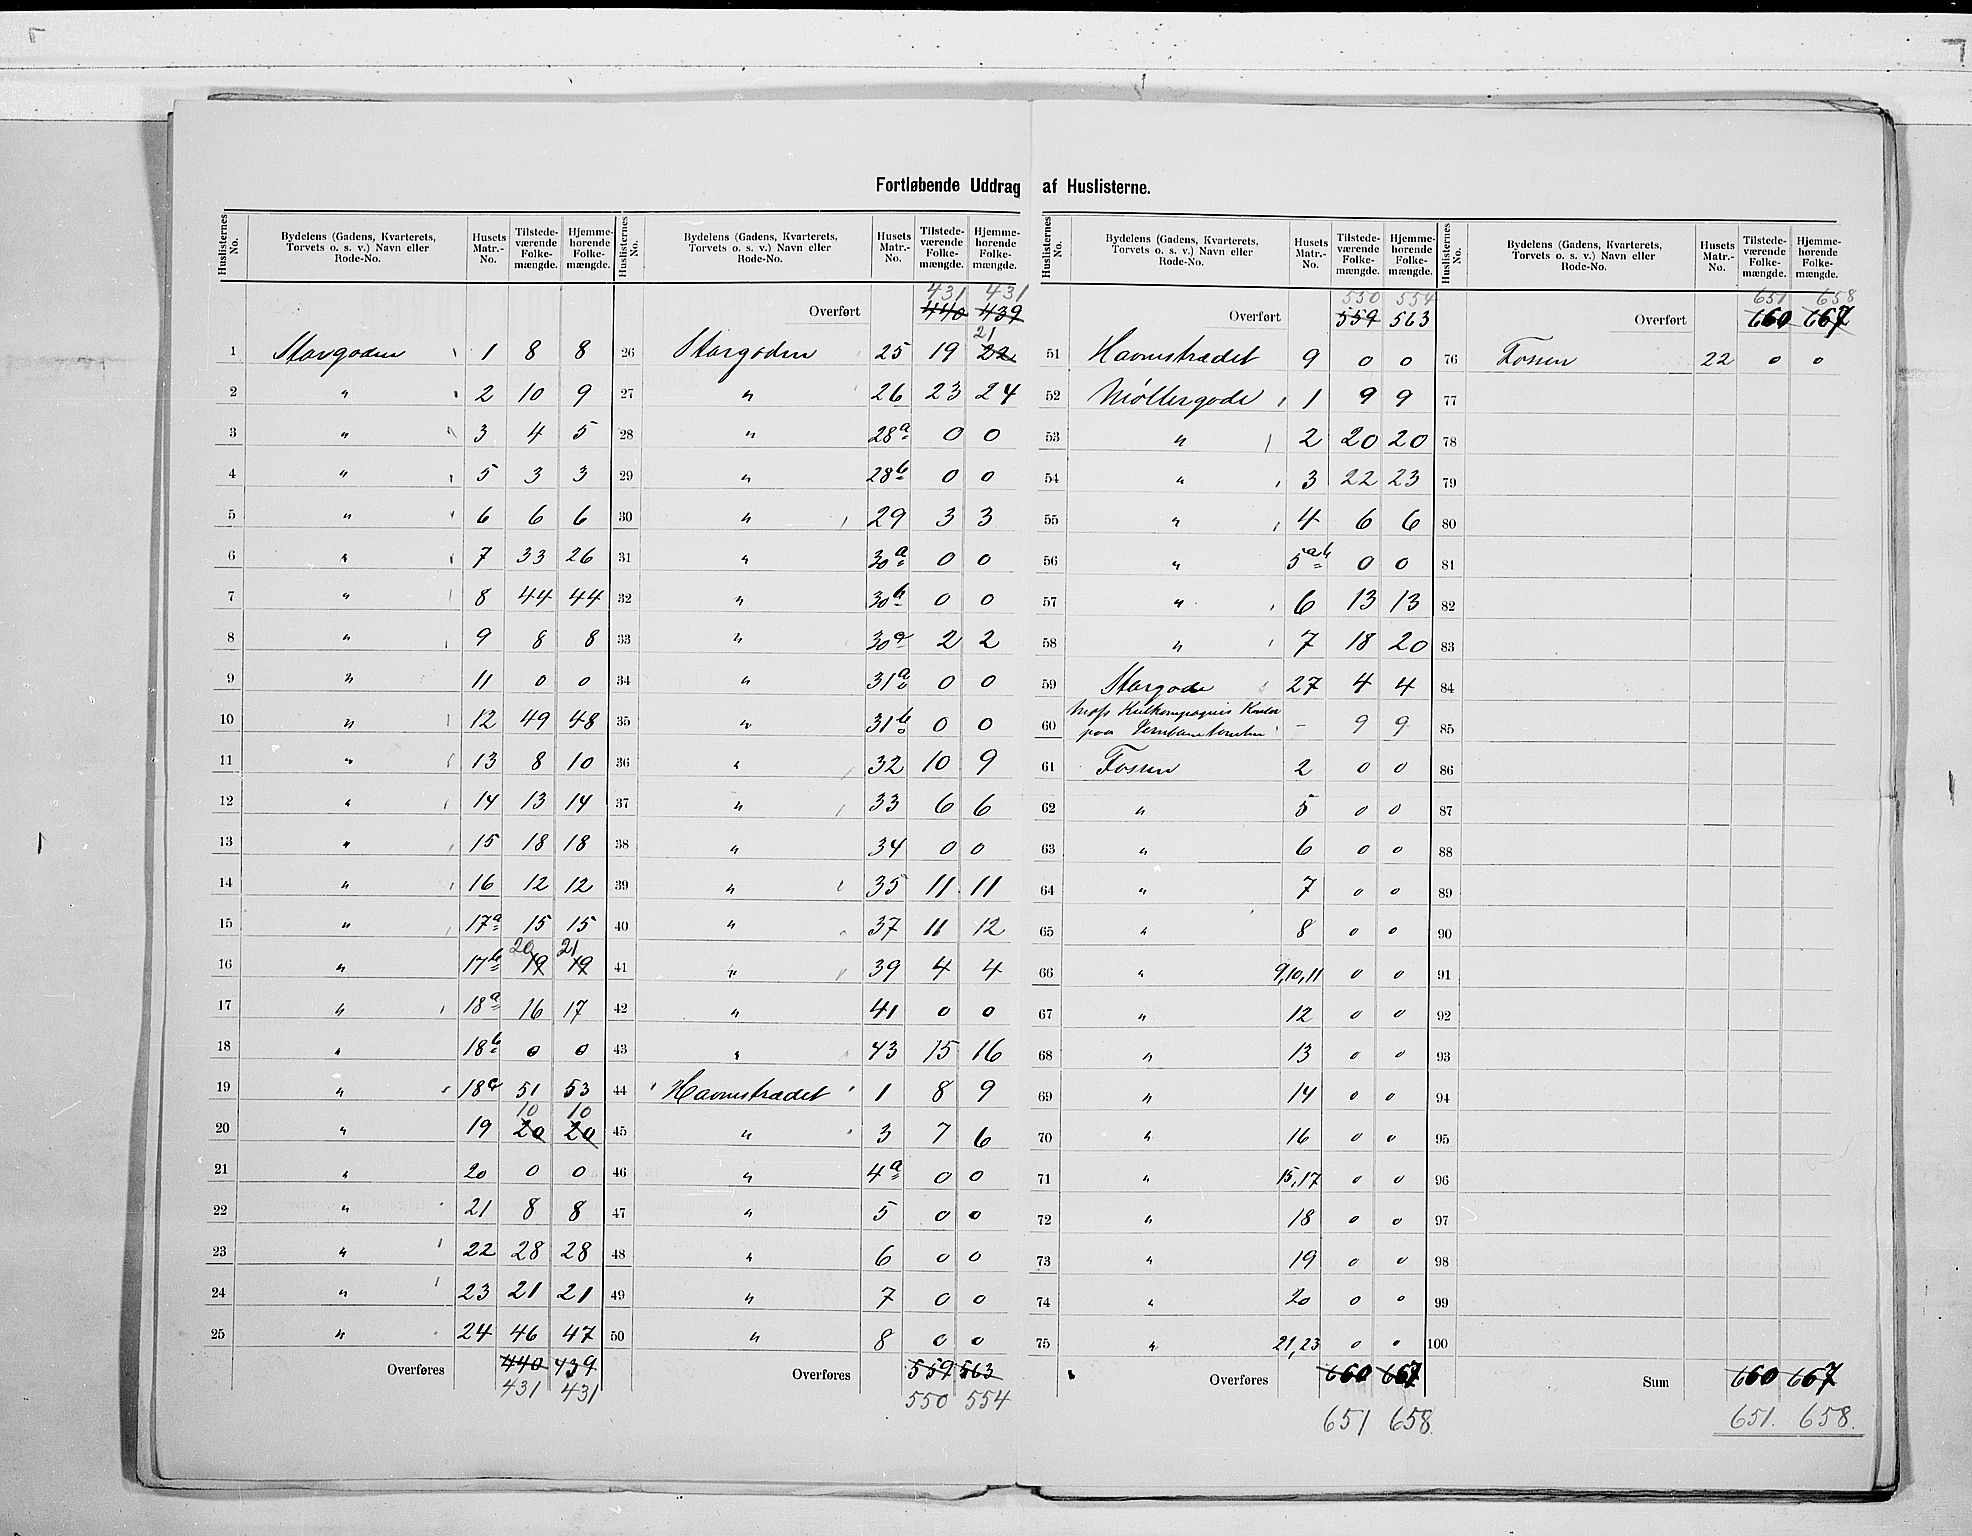 Fortløbende Uddrag af Huslisterne.
Huslisternes No. | Bydelens (Gadens, Kvarterets, Torvets o. s. v.) Navn eller Rode-No. | Husets Matr.-No. | Tilstedeværende Folkemængde. | Hjemmehørende Folkemængde.
1 Storgaden 1 8 8
2 " 2 10 9
3 " 3 4 5
4 " 5 3 3
5 " 6 6 6
6 " 7 33 26
7 " 8 44 44
8 " 9 8 8
9 " 11 0 0
10 " 12 49 48
11 " 13 8 10
12 " 14 13 14
13 " 15 18 18
14 " 16 12 12
15 " 17a 15 15
20 21
16 " 17b 19 19
17 " 18a 16 17
18 " 18b 0 0
19 " 18c 51 53
10 10
20 " 19 20 20
21 " 20 0 0
22 " 21 8 8
23 " 22 28 28
24 " 23 21 21
25 " 24 46 47
Overføres 440 439
431 431
Huslisternes No. | Bydelens (Gadens, Kvarterets, Torvets o. s. v.) Navn eller Rode-No. | Husets Matr.-No. | Tilstedeværende Folkemængde. | Hjemmehørende Folkemængde.
431 431
Overført 440 439
21
26 Storgaden 25 19 22
27 " 26 23 24
28 " 28a 0 0
29 " 28b 0 0
30 " 29 3 3
31 " 30a 0 0
32 " 30b 0 0
33 " 30c 2 2
34 " 31a 0 0
35 " 31b 0 0
36 " 32 10 9
37 " 33 6 6
38 " 34 0 0
39 " 35 11 11
40 " 37 11 12
41 " 39 4 4
42 " 41 0 0
43 " 43 15 16
44 Havnstrædet 1 8 9
45 " 3 7 6
46 " 4a 0 0
47 " 5 0 0
48 " 6 0 0
49 " 7 0 0
50 " 8 0 0
Overføres 559 563
550 554
Huslisternes No. | Bydelens (Gadens, Kvarterets, Torvets o. s. v.) Navn eller Rode-No. | Husets Matr.-No. | Tilstedeværende Folkemængde. | Hjemmehørende Folkemængde.
550 554
Overført 559 563
51 Havnstrædet 9 0 0
52 Møllergade 1 9 9
53 " 2 20 20
54 " 3 22 23
55 " 4 6 6
56 " 5ab 0 0
57 " 6 13 13
58 " 7 18 20
59 Storgade 27 4 4
Moss Kulkompagnis Kontor
60 paa - 9 9
61 Fossen 2 0 0
62 " 5 0 0
63 " 6 0 0
64 " 7 0 0
65 " 8 0 0
66 " 9,10,11 0 0
67 " 12 0 0
68 " 13 0 0
69 " 14 0 0
70 " 16 0 0
71 " 15,17 0 0
72 " 18 0 0
73 " 19 0 0
74 " 20 0 0
75 " 21,23 0 0
Overføres 660 667
651 658.
Huslisternes No. | Bydelens (Gadens, Kvarterets, Torvets o. s. v.) Navn eller Rode-No. | Husets Matr.-No. | Tilstedeværende Folkemængde. | Hjemmehørende Folkemængde.
651 658
Overført 660 667
76 Fossen 22 0 0
77
78
79
80
81
82
83
84
85
86
87
88
89
90
91
92
93
94
95
96
97
98
99
100
Sum 660 667
651. 658.